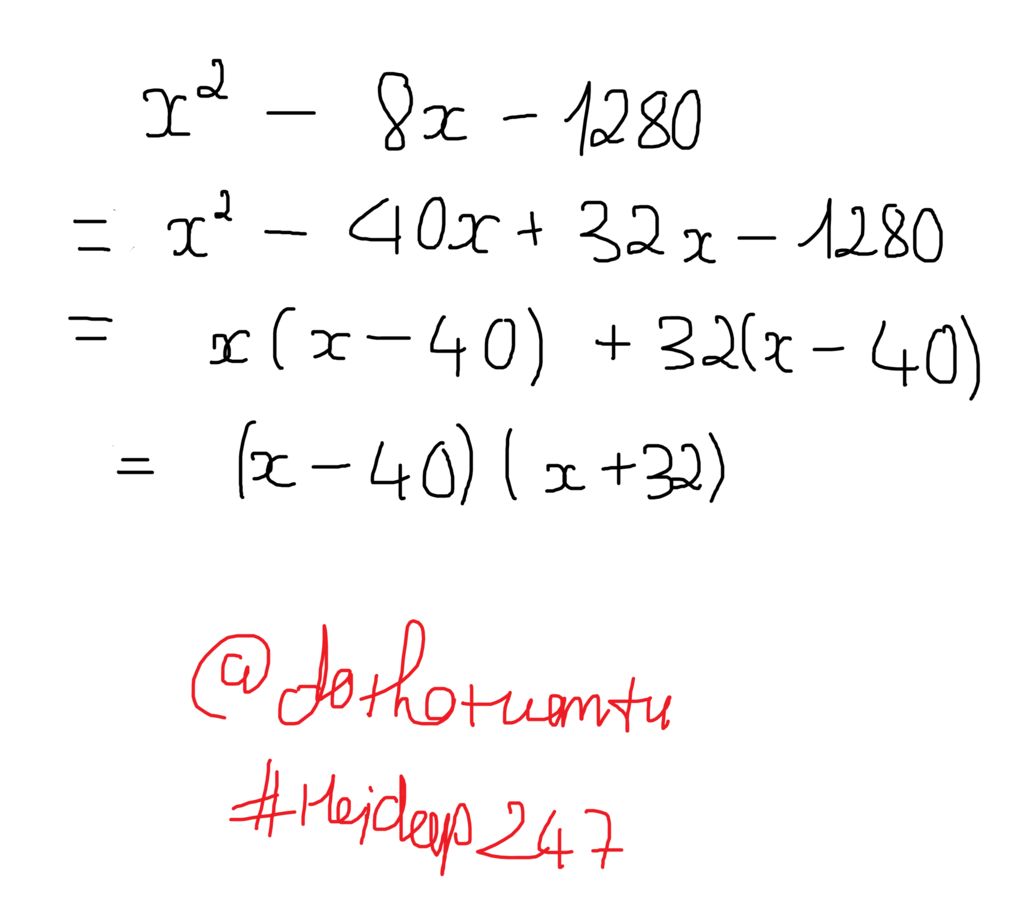 x² - 8x - 1280
= x² - 40x + 32x - 1280
= x(x - 40) + 32(x - 40)
= (x - 40)(x + 32)
@dothotuamtu
#Heidep247